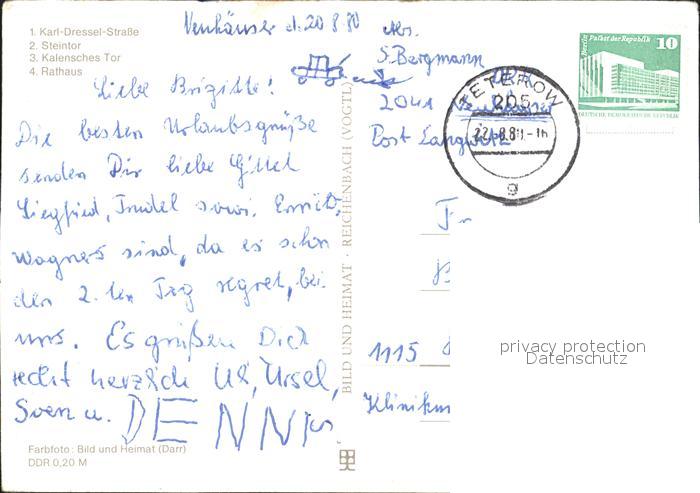 1. Karl-Dressel-Straße
2. Steintor
3. Kalensches Tor
4. Rathaus
Neuhäuser d. 20.8.80
Liebe Brigitte!
Die besten Urlaubsgrüße
senden Dir liebe Gittel
Siegfried, Trudel sowi.
Wagners sind, da es schon
den 2. ten Tag regnet, bei
uns. Es grüßen Dich
recht herzlich Uli, Ursel,
Sven u. DENNIS.
Farbfoto: Bild und Heimat (Darr)
DDR 0,20 M
BILD UND HEIMAT · REICHENBACH (VOGTL)
Abs.
S. Bergmann
2041
Post Langwitz
TETEROW
205
22.-8.80.-16
g
Berlin Palast der Republik 10
DEUTSCHE DEMOKRATISCHE REPUBLIK
Fr
1115
Klinikum
privacy protection
Datenschutz